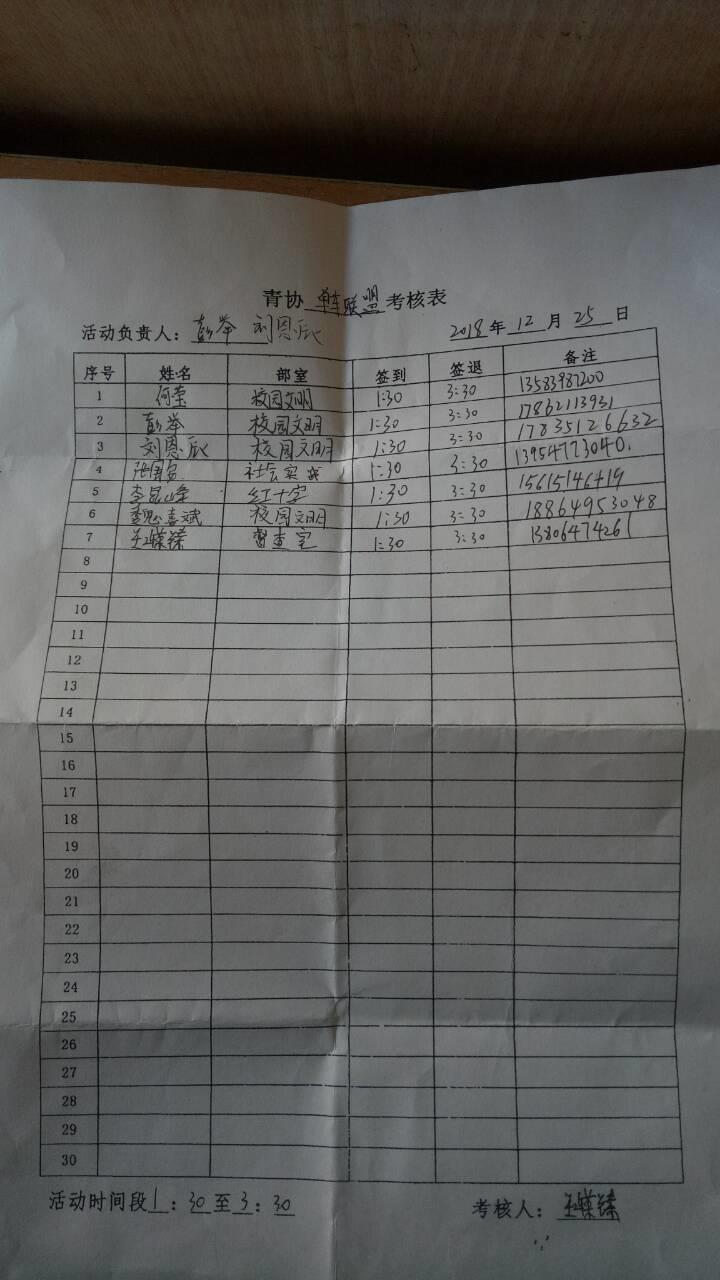 青协 单车联盟 考核表
活动负责人： 彭举 刘恩辰 2018年12月25日
序号 姓名 部室 签到 签退 备注
1 何莹 校园文明 1:30 3:30 13583987200
2 彭举 校园文明 1:30 3:30 17862113931
3 刘恩辰 校园文明 1:30 3:30 17835126632
4 社会实践 1:30 3:30 13954773040.
5 李昆峰 红十字 1:30 3:30 15615146419
6 校园文明 1:30 3:30 18864953048
7 督查室 1:30 3:30 13806474261
8
9
10
11
12
13
14
15
16
17
18
19
20
21
22
23
24
25
26
27
28
29
30
活动时间段1：30至3：30 考核人：